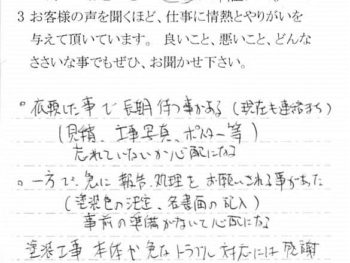 3 お客様の声を聞くほど、仕事に情熱とやりがいを
与えて頂いています。 良いこと、悪いこと、どんな
ささいな事でもぜひ、お聞かせ下さい。
○依頼した事で長期待つ事がある(現在も連絡まち)
(見積、工事写真、ポスター等)
忘れていないか心配になる
○一方で、急に報告、処理をお願いされる事があった
(塗装色の決定、各書面の記入)
事前の準備がないと心配になる
塗装工事本体や急なトラブル対応には感謝